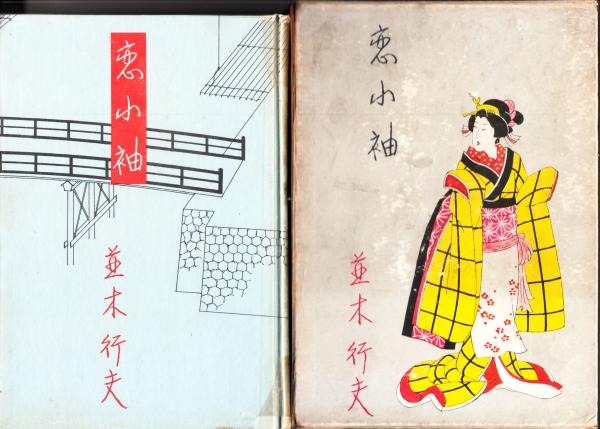 恋小袖
並木行夫
恋小袖
並木行夫